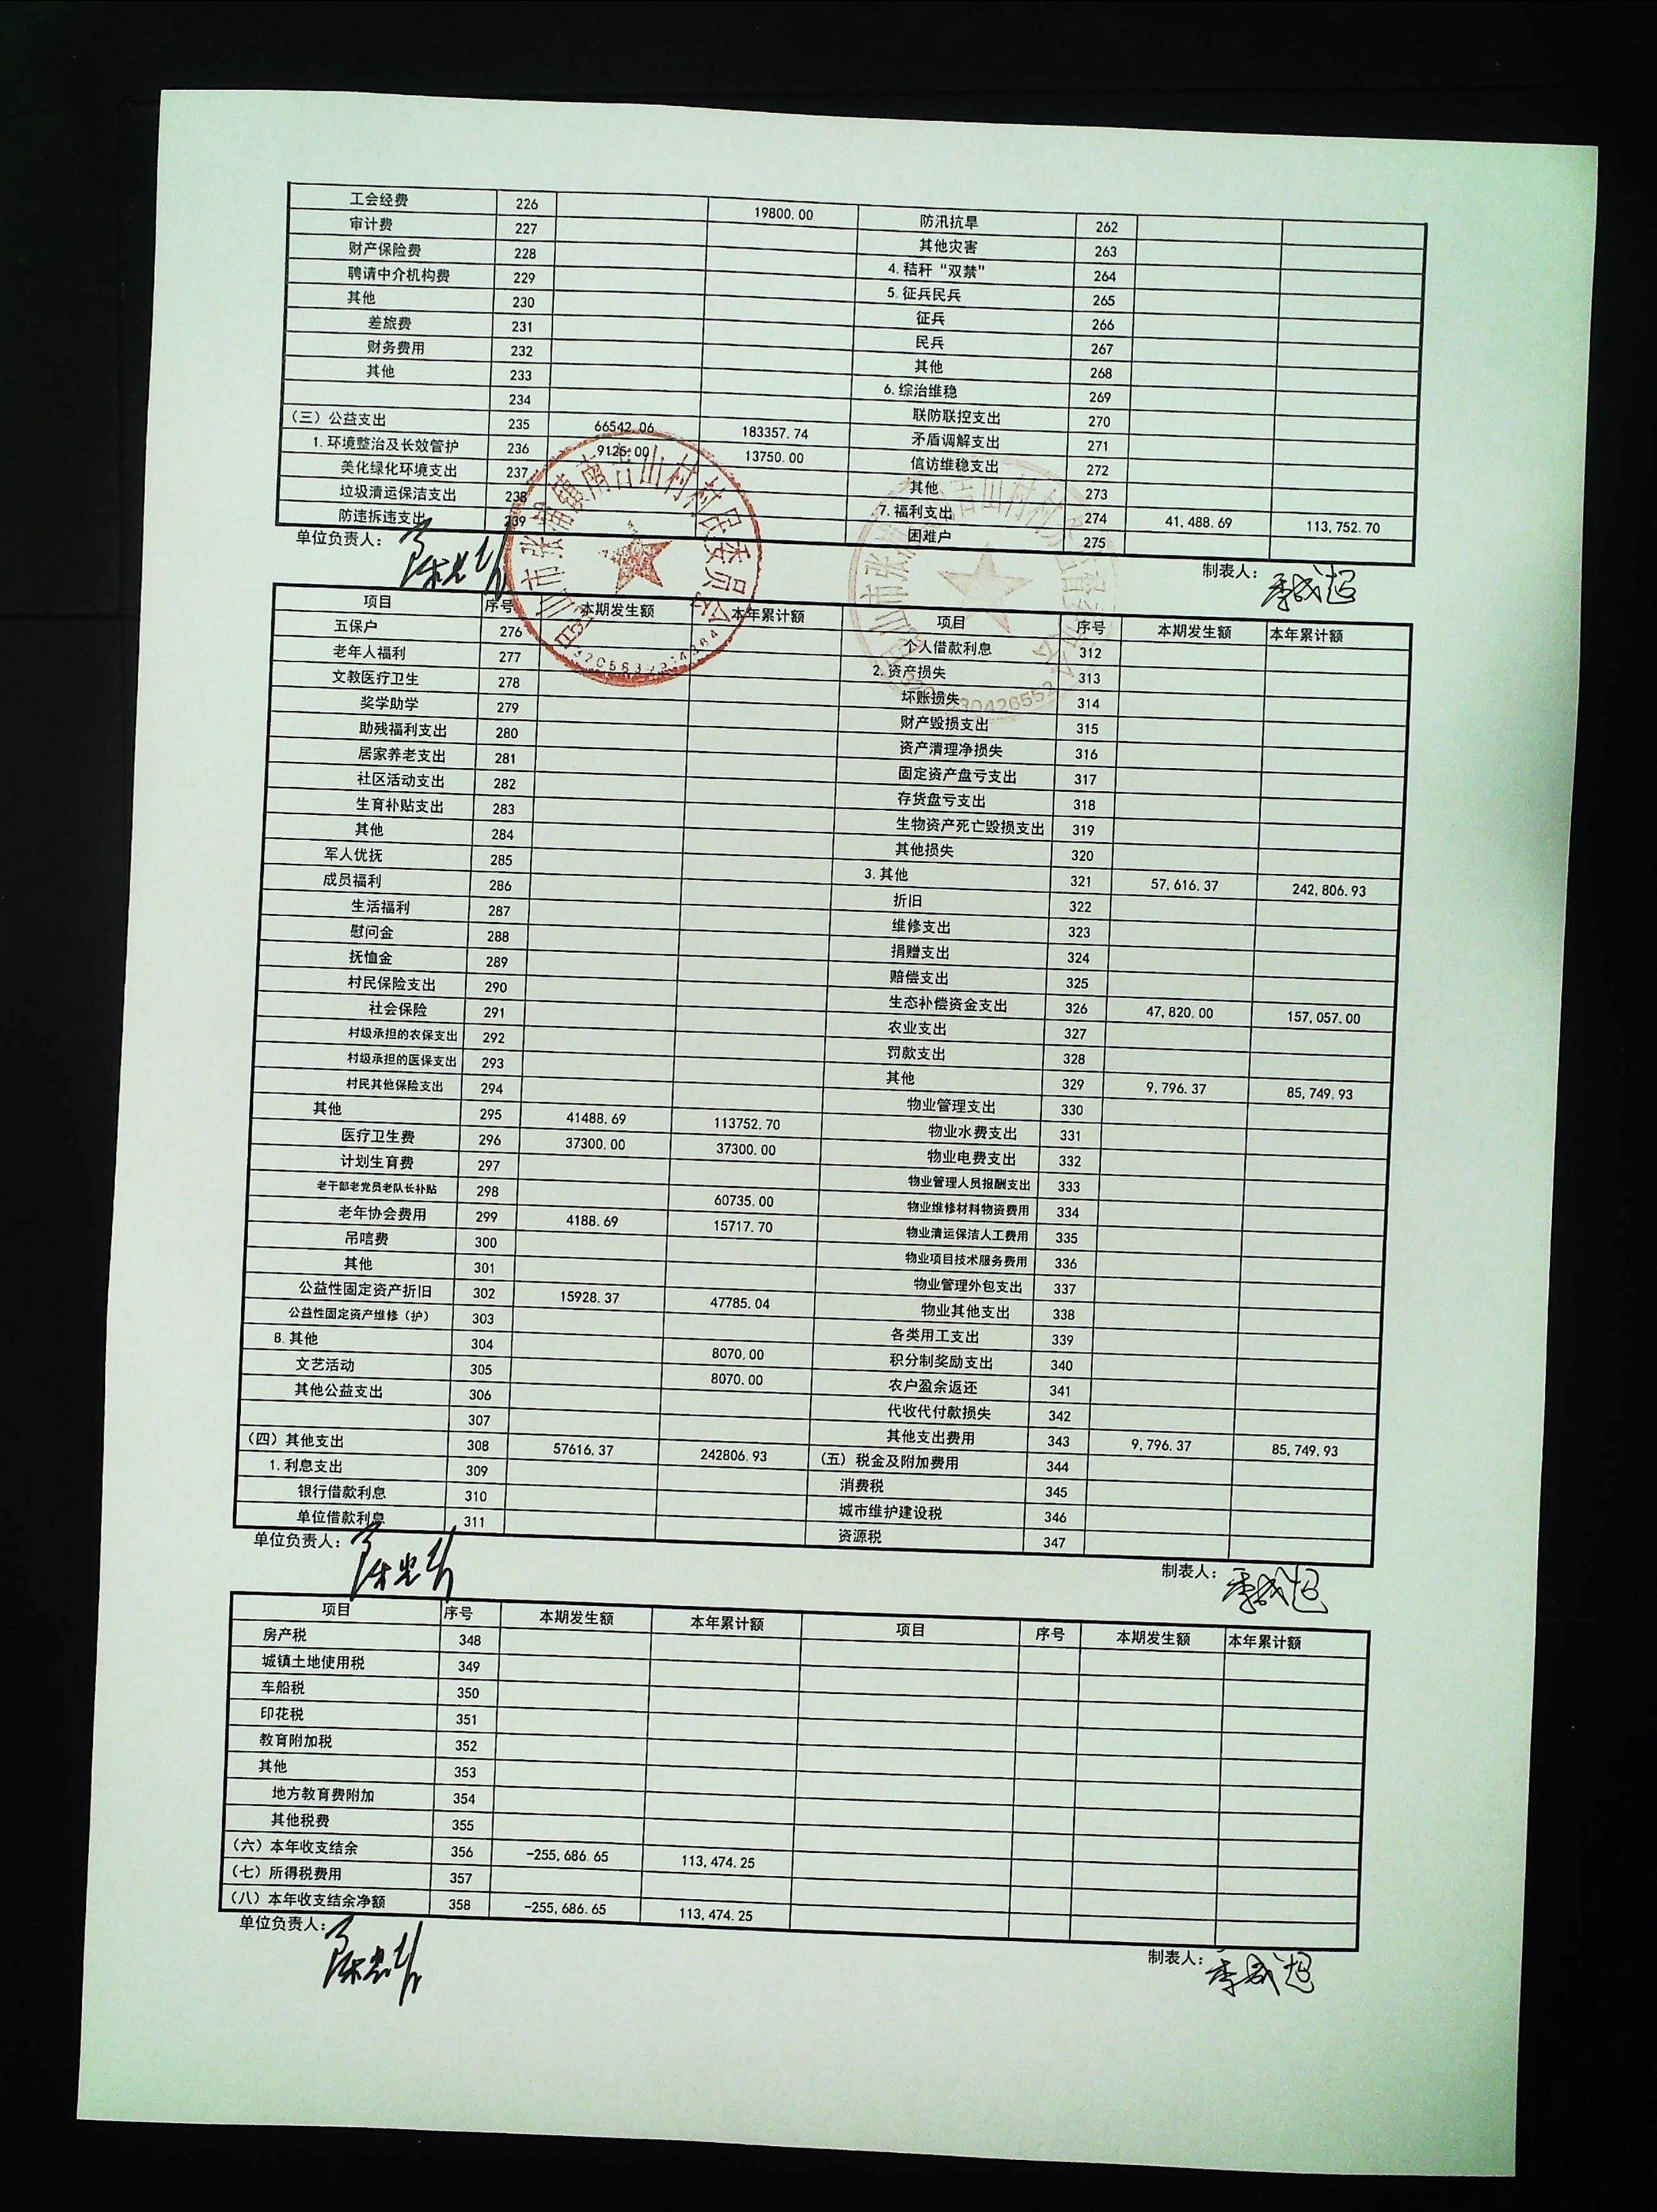 工会经费 226 19800.00 防汛抗旱 262
审计费 227 其他灾害 263
财产保险费 228 4.秸秆“双禁” 264
聘请中介机构费 229 5.征兵民兵 265
其他 230 征兵 266
差旅费 231 民兵 267
财务费用 232 其他 268
其他 233 6.综治维稳 269
234 联防联控支出 270
（三）公益支出 235 66542.06 183357.74 矛盾调解支出 271
1.环境整治及长效管护 236 9125.00 13750.00 信访维稳支出 272
美化绿化环境支出 237 其他 273
垃圾清运保洁支出 238 7.福利支出 274 41,488.69 113,752.70
防违拆违支出 239 困难户 275
单位负责人： 制表人：
山市张浦镇南吉山村村民委员会
项目 序号 本期发生额 本年累计额 项目 序号 本期发生额 本年累计额
五保户 276 个人借款利息 312
老年人福利 277 2.资产损失 313
文教医疗卫生 278 坏账损失 314
奖学助学 279 财产毁损支出 315
助残福利支出 280 资产清理净损失 316
居家养老支出 281 固定资产盘亏支出 317
社区活动支出 282 存货盘亏支出 318
生育补贴支出 283 生物资产死亡毁损支出 319
其他 284 其他损失 320
军人优抚 285 3.其他 321 57,616.37 242,806.93
成员福利 286 折旧 322
生活福利 287 维修支出 323
慰问金 288 捐赠支出 324
抚恤金 289 赔偿支出 325
村民保险支出 290 生态补偿资金支出 326 47,820.00 157,057.00
社会保险 291 农业支出 327
村级承担的农保支出 292 罚款支出 328
村级承担的医保支出 293 其他 329 9,796.37 85,749.93
村民其他保险支出 294 物业管理支出 330
其他 295 41488.69 113752.70 物业水费支出 331
医疗卫生费 296 37300.00 37300.00 物业电费支出 332
计划生育费 297 物业管理人员报酬支出 333
老干部老党员老队长补贴 298 60735.00 物业维修材料物资费用 334
老年协会费用 299 4188.69 15717.70 物业清运保洁人工费用 335
吊唁费 300 物业项目技术服务费用 336
其他 301 物业管理外包支出 337
公益性固定资产折旧 302 15928.37 47785.04 物业其他支出 338
公益性固定资产维修（护） 303 各类用工支出 339
8.其他 304 8070.00 积分制奖励支出 340
文艺活动 305 8070.00 农户盈余返还 341
其他公益支出 306 代收代付款损失 342
307 其他支出费用 343 9,796.37 85,749.93
（四）其他支出 308 57616.37 242806.93 （五）税金及附加费用 344
1.利息支出 309 消费税 345
银行借款利息 310 城市维护建设税 346
单位借款利息 311 资源税 347
单位负责人： 制表人：
项目 序号 本期发生额 本年累计额 项目 序号 本期发生额 本年累计额
房产税 348
城镇土地使用税 349
车船税 350
印花税 351
教育附加税 352
其他 353
地方教育费附加 354
其他税费 355
（六）本年收支结余 356 -255,686.65 113,474.25
（七）所得税费用 357
（八）本年收支结余净额 358 -255,686.65 113,474.25
单位负责人： 制表人：